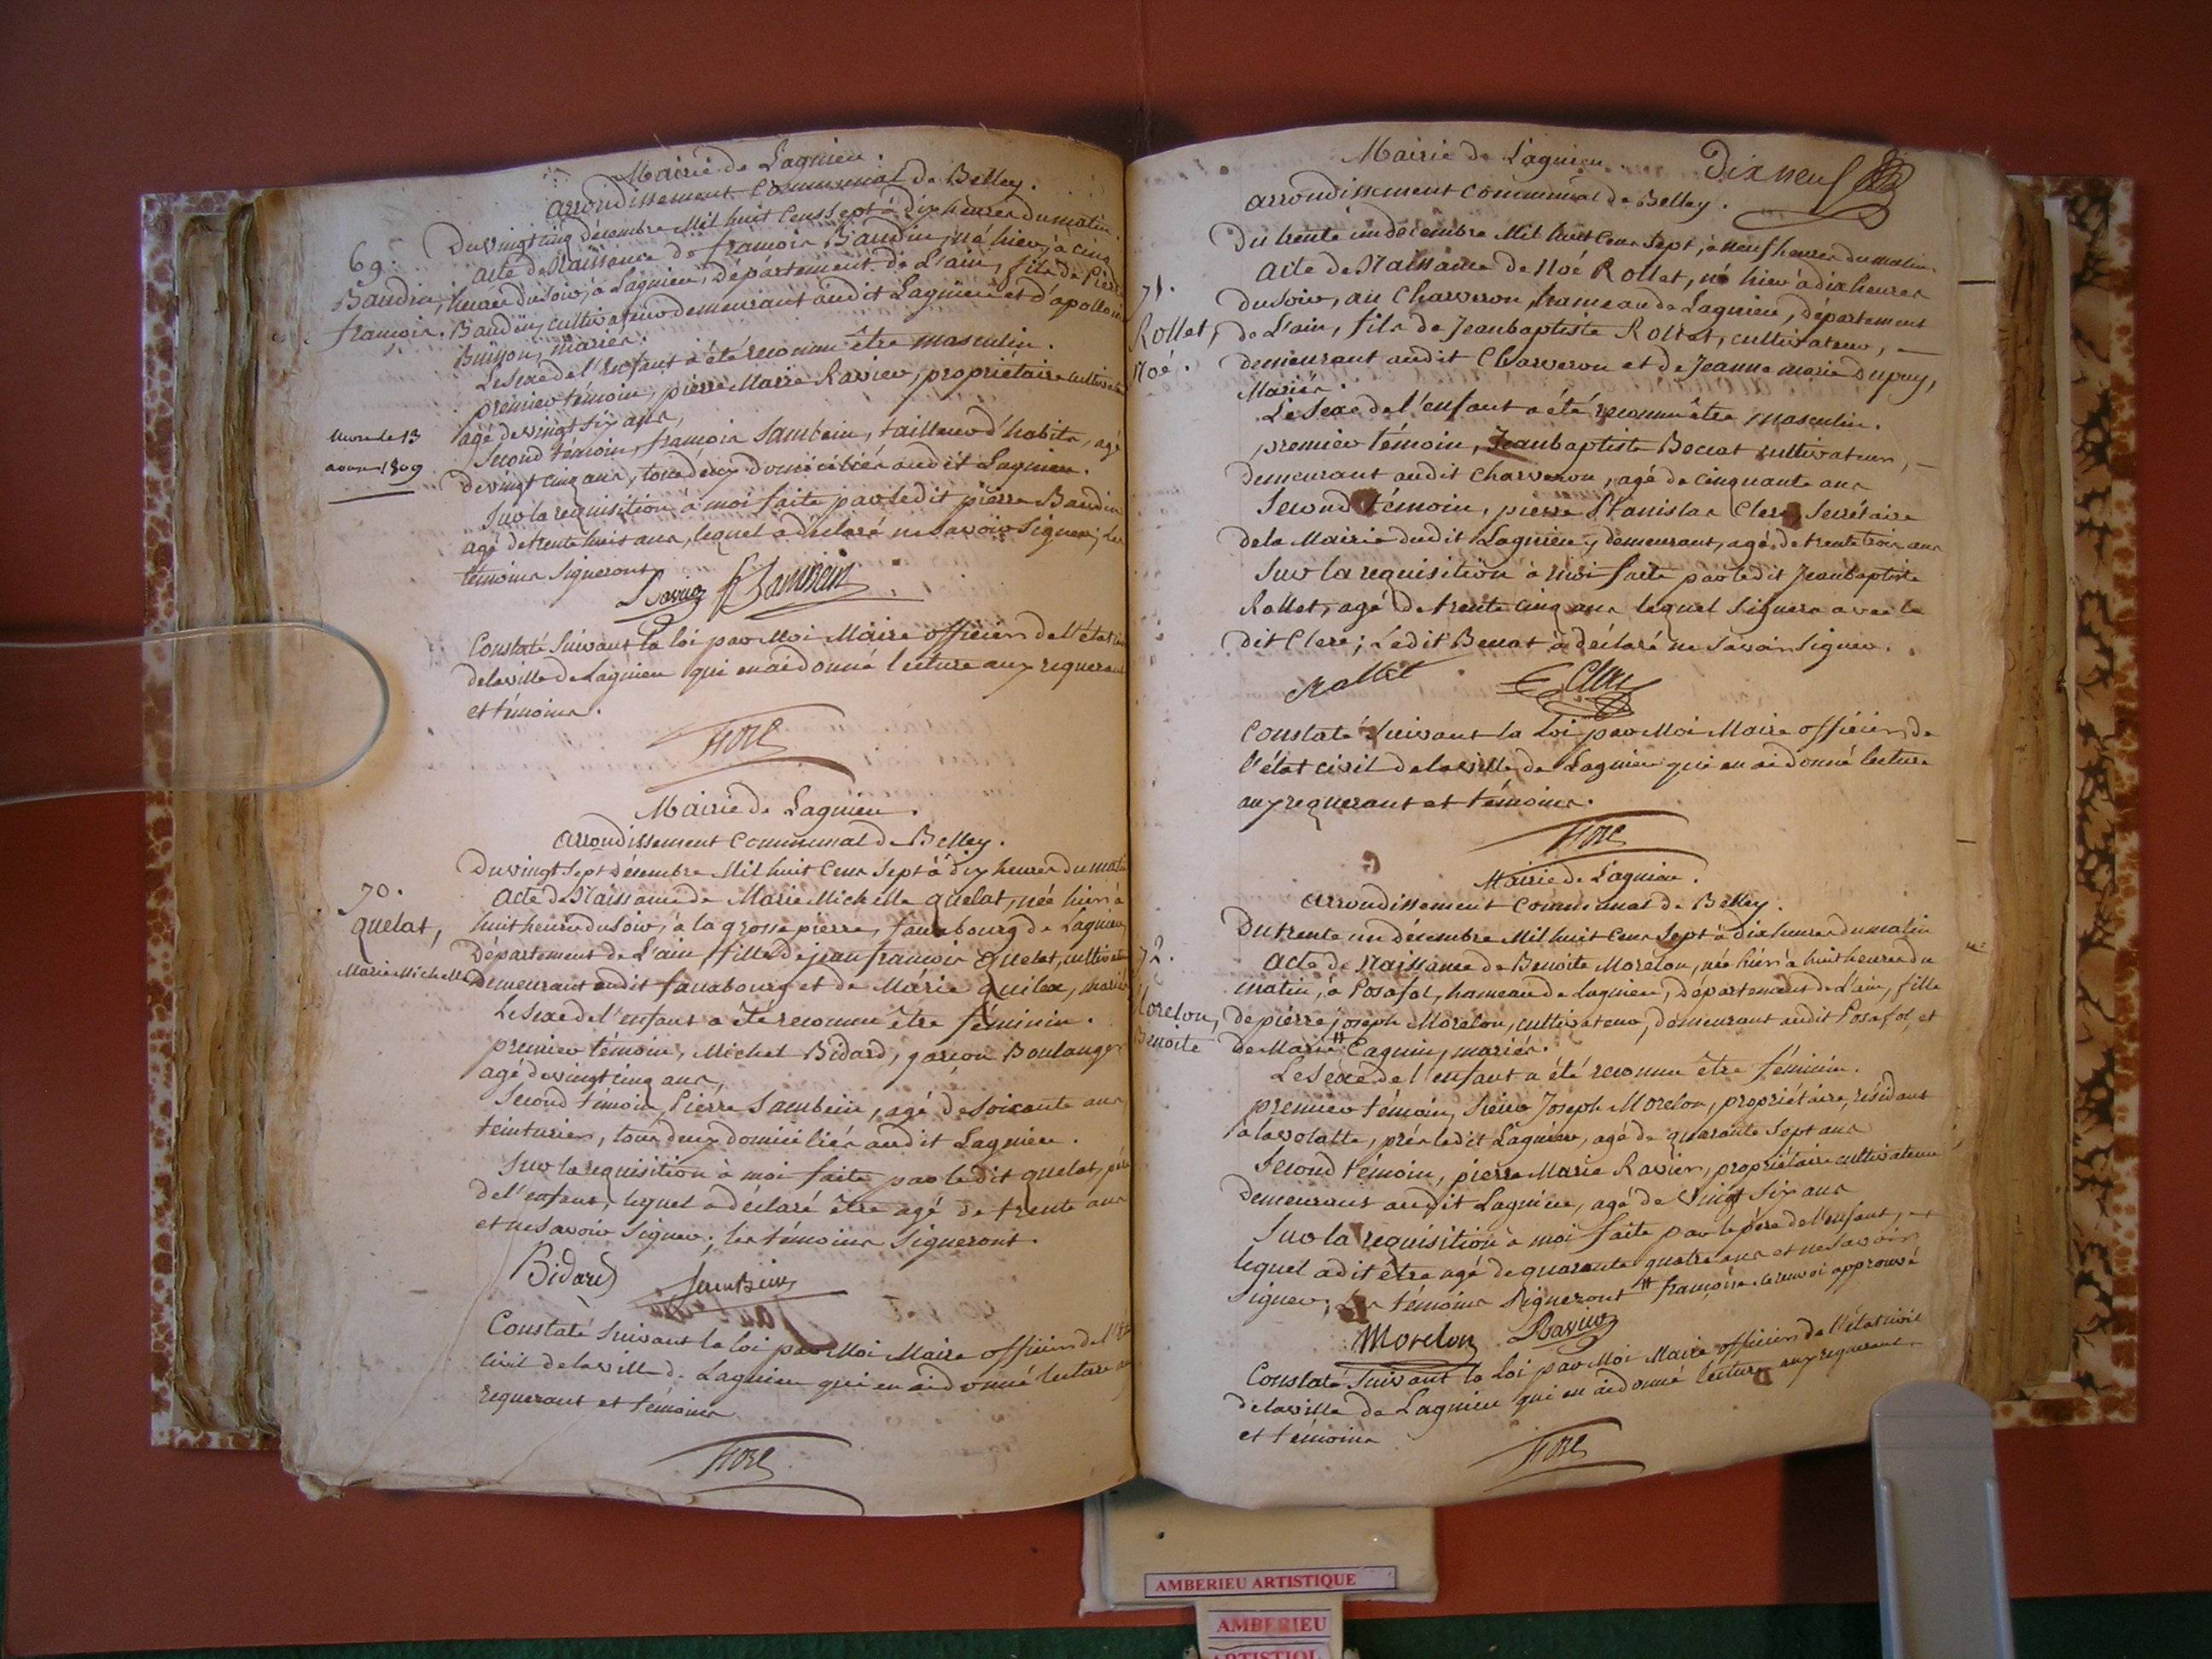 Mairie de Lagnieu.
arrondissement Communal de Belley.
Du vingt cinq décembre Mil huit Cens sept à dix heures du matin.
69.
acte de Naissance de françois Baudin, né hier, à cinq
Baudin, heures du soir, à Lagnieu, Département de L'ain, fils de Pierre
françois. Baudin, cultivateur demeurant audit Lagnieu et d'apolloine
mariés.
Le sexe de l'enfant a été reconnu être masculin.
premier témoin, pierre Marie Ravier, propriétaire cultivateur
agé de vingt six ans,
Mort le 13
aoust 1809
Second témoin, françois Sambein, tailleur d'habits, agé
de vingt cinq ans, tous deux domiciliés audit Lagnieu.
Sur la requisition à moi faite par ledit pierre Baudin
agé de trente huit ans, lequel a déclaré ne savoir signer; les
témoins signeront
Ravier f Sambein
Constaté suivant la loi par Moi Maire officier de l'état
de la ville de Lagnieu qui en ai donné lecture aux requerant
et témoins.
Mairie de Lagnieu.
arrondissement Communal de Belley.
Du vingt sept décembre Mil huit Cens sept à dix heures du matin
70.
Acte de Naissance de Marie Michelle quelat, née hier à
quelat, huit heures du soir, à la grosse pierre, fauxbourg de Lagnieu
Département de L'ain, fille de jean françois quelat, cultivateur
Marie Michelle demeurant audit fauxbourg et de Marie quilex, mariés
Le sexe de l'enfant a été reconnu être féminin.
premier témoin, Michel Bidard, garçon Boulanger
agé de vingt cinq ans,
Second témoin, Pierre Sambein, agé de soixante ans
teinturier, tous deux domiciliés audit Lagnieu.
Sur la requisition à moi faite par le dit quelat, père
de l'enfant, lequel a déclaré être agé de trente ans
et ne savoir signer; les témoins signeront.
Bidard Sambein
Constaté suivant la loi par Moi Maire officier de l'état
civil de la ville de Lagnieu qui en ai donné lecture aux
requerant et témoins
Mairie de Lagnieu. Dix neuf
arrondissement communal de Belley.
Du trente un décembre Mil huit Cens sept, à neuf heures du matin
71.
Acte de Naissance de Noé Rollet, né hier à dix heures
du soir, au Charveron, hameau de Lagnieu, département
Rollet, de L'ain, fils de Jean baptiste Rollet, cultivateur,
Noé. demeurant audit Charveron et de Jeanne marie Dupuy,
Mariés.
Le sexe de l'enfant a été reconnu être masculin.
premier témoin, Jean baptiste cultivateur,
demeurant audit Charveron, agé de cinquante ans
Second témoin, pierre Stanislas Clerc, Secrétaire
de la Mairie dudit Lagnieu y demeurant, agé de trente trois ans
Sur la requisition à moi faite par le dit Jean baptiste
Rollet, agé de trente cinq ans lequel signera avec le
dit Clerc; Ledit a déclaré ne savoir signer.
Rollet Clerc
Constaté suivant la Loi par Moi Maire officier de
l'état civil de la ville de Lagnieu qui en ai donné lecture
aux requerant et témoins.
Mairie de Lagnieu.
arrondissement communal de Belley.
Du trente un décembre Mil huit Cens sept à dix heures du matin
72.
Acte de Naissance de Benoite Morelon, née hier à huit heures du
matin, à Posafol, hameau de Lagnieu, département de L'ain, fille
Morelon, de pierre joseph Morelon, cultivateur, demeurant audit Posafol, et
Benoite de Marie # Cagnin, mariés.
Le sexe de l'enfant a été reconnu être féminin.
premier témoin, Sieur Joseph Morelon, propriétaire, résidant
à la volatte, près ledit Lagnieu, agé de quarante sept ans
Second témoin, pierre Marie Ravier, propriétaire cultivateur
demeurant audit Lagnieu, agé de vingt six ans
Sur la requisition à moi faite par le père de l'enfant,
lequel a dit être agé de quarante quatre ans et ne savoir
signer; Les témoins signeront # françoise. le renvoi approuvé
Morelon Ravier
Constaté suivant la Loi par Moi Maire officier de l'état civil
de la ville de Lagnieu qui en ai donné lecture aux requerant
et témoins
AMBERIEU ARTISTIQUE
AMBERIEU